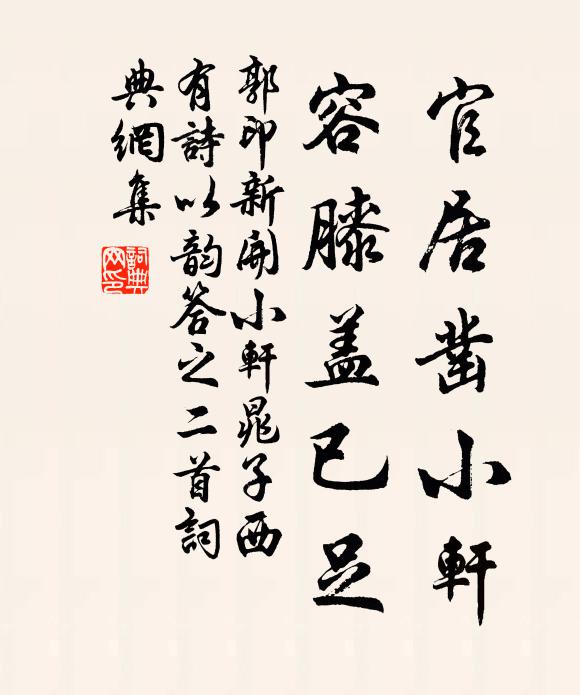 官居凿小軒
容膝盖已足
郭印新開小軒晁子西
有詩以韵答之二首詞
典網集
詞典
网印